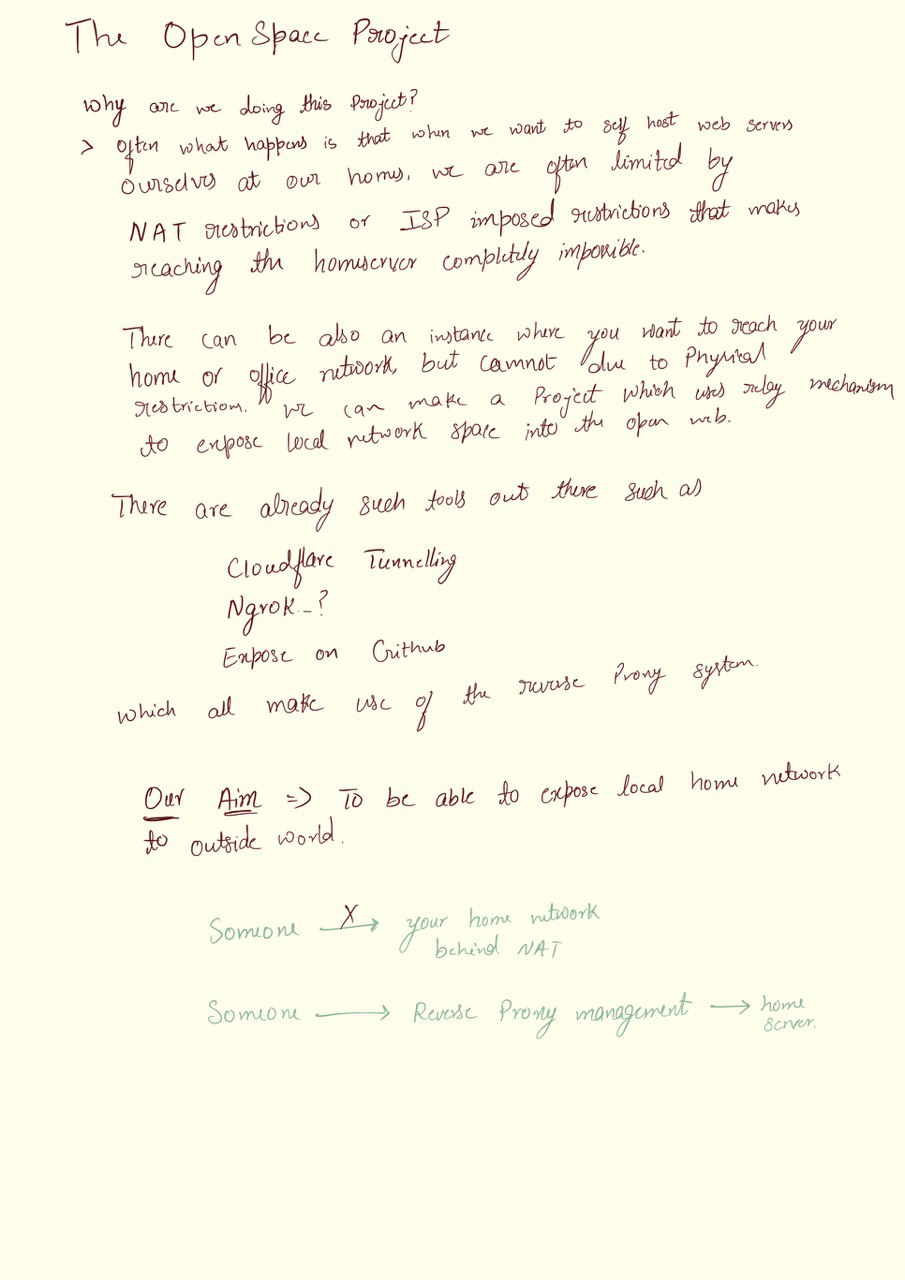 The OpenSpace Project
Why are we doing this Project?
> Often what happens is that when we want to self host web servers
ourselves at our homes, we are often limited by
NAT restrictions or ISP imposed restrictions that makes
reaching the homeserver completely impossible.
There can be also an instance where you want to reach your
home or office network, but cannot due to Physical
restriction. We can make a Project which uses relay mechanism
to expose local network space into the open web.
There are already such tools out there such as
Cloudflare Tunnelling
Ngrok..?
Expose on Github
which all make use of the reverse Proxy system.
Our Aim => To be able to expose local home network
to outside world.
Someone X→ your home network
behind NAT
Someone → Reverse Proxy management → home
server.